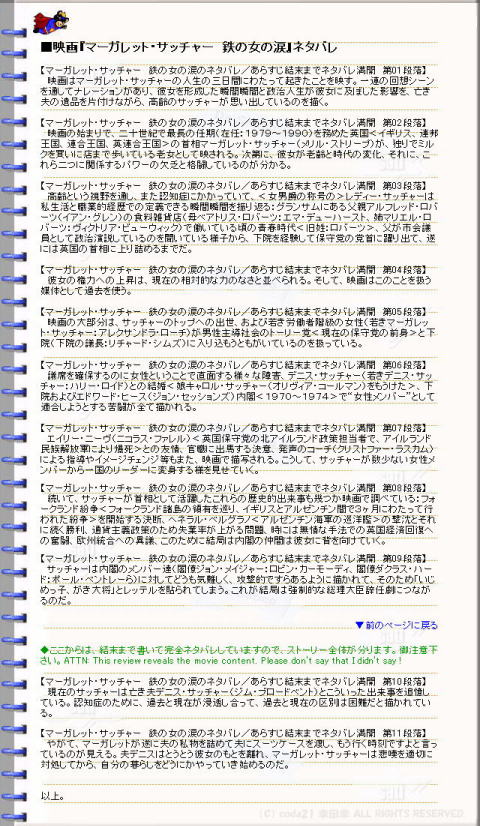 ■映画『マーガレット・サッチャー 鉄の女の涙』ネタバレ
【マーガレット・サッチャー 鉄の女の涙のネタバレ／あらすじ結末までネタバレ満開 第01段落】
映画はマーガレット・サッチャーの人生の三日間にわたって起きたことを映す。一連の回想シーン
を通してナレーションがあり、彼女を形成した瞬間瞬間と政治人生が彼女に及ました影響を、亡き
夫の遺品を片付けながら、高齢のサッチャーが思い出しているのを描く。
【マーガレット・サッチャー 鉄の女の涙のネタバレ／あらすじ結末までネタバレ満開 第02段落】
映画の始まりで、二十世紀で最長の任期（在任：1979～1990）を務めた英国＜イギリス、連邦
王国、連合王国、英連合王国＞の首相マーガレット・サッチャー（メリル・ストリープ）が、独りでミル
クを買いに店まで歩いている老女として映される。次第に、彼女が老齢と時代の変化、それに、こ
れら二つに関係するパワーの欠乏と格闘しているのが分かる。
【マーガレット・サッチャー 鉄の女の涙のネタバレ／あらすじ結末までネタバレ満開 第03段落】
高齢という視野を通し、また認知症にかかっていて、＜女男爵の称号の＞レディー・サッチャーは
私生活と職業的経歴での定義できる瞬間瞬間を振り返る：グランサムにある父親アルフレッド・ロバ
ーツ（イアン・グレン）の食料雑貨店（母ベアトリス・ロバーツ：エマ・デューハースト、姉マリエル・ロ
バーツ：ヴィクトリア・ビューウィック）で働いている頃の青春時代＜旧姓：ロバーツ＞、父が市会議
員として政治演説しているのを聞いている様子から、下院を経験して保守党の党首に躍り出て、遂
には英国の首相に上り詰めるまでだ。
【マーガレット・サッチャー 鉄の女の涙のネタバレ／あらすじ結末までネタバレ満開 第04段落】
彼女の権力への上昇は、現在の相対的な力のなさと並べられる。そして、映画はこのことを扱う
媒体として過去を使う。
【マーガレット・サッチャー 鉄の女の涙のネタバレ／あらすじ結末までネタバレ満開 第05段落】
映画の大部分は、サッチャーのトップへの出世、および若き労働者階級の女性（若きマーガレッ
ト・サッチャー：アレクサンドラ・ローチ）が男性主導社会のトーリー党＜現在の保守党の前身＞と下
院（下院の議長：リチャード・シムズ）に入り込もうともがいているのを扱っている。
【マーガレット・サッチャー 鉄の女の涙のネタバレ／あらすじ結末までネタバレ満開 第06段落】
議席を確保するのに女性ということで直面する様々な障害、デニス・サッチャー（若きデニス・サッ
チャー：ハリー・ロイド）との結婚＜娘キャロル・サッチャー（オリヴィア・コールマン）をもうけた＞、下
院およびエドワード・ヒース（ジョン・セッションズ）内閣＜1970～1974＞で“女性メンバー”として
適合しようとする苦闘が全て描かれる。
【マーガレット・サッチャー 鉄の女の涙のネタバレ／あらすじ結末までネタバレ満開 第07段落】
エイリー・ニーヴ（ニコラス・ファレル）＜英国保守党の北アイルランド政策担当者で、アイルランド
民族解放軍により爆死＞との友情、官職に出馬する決意、発声のコーチ（クリストファー・ラスカム）
による指導やイメージチェンジ等もまた、映画で描写される。こうして、サッチャーが数少ない女性メ
ンバーから一国のリーダーに変身する様を見せていく。
【マーガレット・サッチャー 鉄の女の涙のネタバレ／あらすじ結末までネタバレ満開 第08段落】
続いて、サッチャーが首相として活躍したこれらの歴史的出来事も幾つか映画で調べている：フォ
ークランド紛争＜フォークランド諸島の領有を巡り、イギリスとアルゼンチン間で3ヶ月にわたって行
われた紛争＞を開始する決断、ヘネラル・ベルグラノ＜アルゼンチン海軍の巡洋艦＞の撃沈とそれ
に続く勝利、通貨主義政策のため失業率が上がる問題、時には無情な手法での英国経済回復へ
の奮闘、欧州統合への異議、このために結局は内閣の仲間は彼女に背を向けていく。
【マーガレット・サッチャー 鉄の女の涙のネタバレ／あらすじ結末までネタバレ満開 第09段落】
サッチャーは内閣のメンバー達（閣僚ジョン・メイジャー：ロビン・カーモーディ、閣僚ダクラス・ハー
ド：ポール・ベントレーら）に対してどうも気難しく、攻撃的ですらあるように描かれて、そのため「いじ
めっ子、がき大将」とレッテルを貼られてしまう。これが結局は強制的な総理大臣辞任劇につなが
るのだ。
▼前のページに戻る
◆ここからは、結末まで書いて完全ネタバレしていますので、ストーリー全体が分ります。御注意下
さい。ATTN: This review reveals the movie content. Please don't say that I didn't say !
【マーガレット・サッチャー 鉄の女の涙のネタバレ／あらすじ結末までネタバレ満開 第10段落】
現在のサッチャーは亡き夫デニス・サッチャー（ジム・ブロードベント）とこういった出来事を追憶し
ている。認知症のために、過去と現在が浸透し合って、過去と現在の区別は困難だと描かれてい
る。
【マーガレット・サッチャー 鉄の女の涙のネタバレ／あらすじ結末までネタバレ満開 第11段落】
やがて、マーガレットが遂に夫の私物を詰めて夫にスーツケースを渡し、もう行く時刻ですよと言っ
ているのが見える。夫デニスはとうとう彼女のもとを離れ、マーガレット・サッチャーは悲嘆を適切に
対処してから、自分の暮らしをどうにかやっていき始めるのだ。
以上。
(C) coda21 幸田幸 ALL RIGHTS RESERVED.